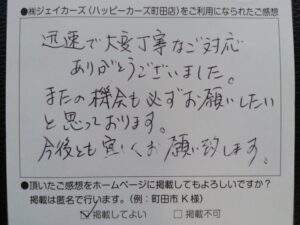 ●㈱ジェイカーズ(ハッピーカーズ町田店)をご利用になられたご感想
迅速で大変丁寧なご対応
ありがとうございました。
またの機会も必ずお願いしたい
と思っております。
今後とも宜しくお願い致します。
●頂いたご感想をホームページに掲載してもよろしいですか?
掲載は匿名で行います。(例:町田市K様)
☑掲載してよい □掲載不可